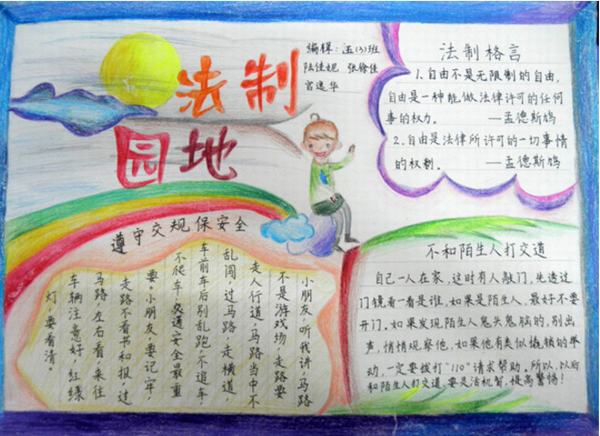 法制
园地
编辑：五(3)班
陆佳妮 张徐佳
宫逸华
法制格言
1.自由不是无限制的自由，
自由是一种能做法律许可的任何
事的权力。 —孟德斯鸠
2.自由是法律所许可的一切事情
的权制。 —孟德斯鸠
遵守交规保安全
小朋友，听我讲，马路
不是游戏场，走路要
走人行道，马路当中不
乱闯，过马路，走横道
车前车后别乱跑，不追车
不爬车，交通安全最重
要，小朋友，要记牢，
走路不看书和报，过
马路左右看，来往
车辆注意好，红绿
灯，要看清。
不和陌生人打交道
自己一人在家，这时有人敲门，先透过
门镜看一看是谁，如果是陌生人，最好不要
开门。如果发现陌生人鬼头鬼脑的，别出
声，悄悄观察他，如果他有类似撬锁的举
动，一定要拨打"110"请求帮助。所以，以后
和陌生人打交道，要灵活机智，提高警惕！